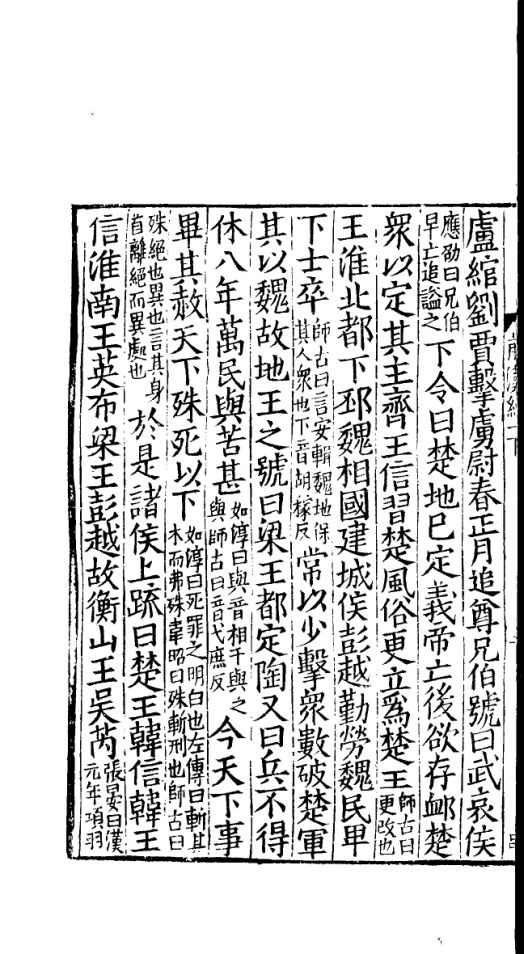 盧綰劉賈擊虜尉春正月追尊兄伯號曰武哀侯
應劭曰兄伯早亡追謚之下令曰楚地已定義帝亡後欲存邺楚
衆以定其主齊王信習楚風俗更立爲楚王師古曰更改也
王淮北都下邳魏相國建城侯彭越勤勞魏民卑
下士卒師古曰言安輯魏地保其人衆也下音胡稼反常以少擊衆數破楚軍
其以魏故地王之號曰梁王都定陶又曰兵不得
休八年萬民與苦甚如淳曰與音相干與之與師古曰音弋庶反今天下事
畢其赦天下殊死以下如淳曰死罪之明白也左傳曰斬其木而弗殊韋昭曰殊斬刑也師古曰
殊絕也異也言其身首離絕而異處也於是諸侯上疏曰楚王韓信韓王
信淮南王英布梁王彭越故衡山王吳芮張晏曰漢元年項羽